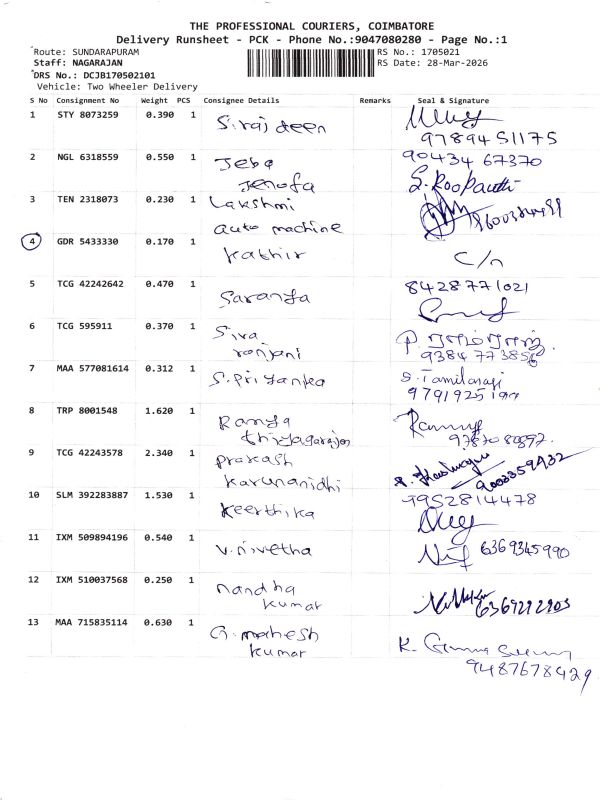 THE PROFESSIONAL COURIERS, COIMBATORE
Delivery Runsheet - PCK - Phone No.:9047080280 - Page No.:1
Route: SUNDARAPURAM RS No.: 1705021
Staff: NAGARAJAN RS Date: 28-Mar-2026
DRS No.: DCJB170502101
Vehicle: Two Wheeler Delivery
S No Consignment No Weight PCS Consignee Details Remarks Seal & Signature
1 STY 8073259 0.390 1 Siraj deen
9789451175
2 NGL 6318559 0.550 1 Jeba 90434 67370
Jenofa
3 TEN 2318073 0.230 1 Lakshmi
auto machine
4 GDR 5433330 0.170 1 Kathir C/n
5 TCG 42242642 0.470 1 Saranya 8428771021
6 TCG 595911 0.370 1 Siva
ranjani 9384773856
7 MAA 577081614 0.312 1 S.Priyanka
8 TRP 8001548 1.620 1 Ramya
thiyagarajan
9 TCG 42243578 2.340 1 Prakash
Karunanidhi 9003359932
10 SLM 392283887 1.530 1 Keerthika 9952814478
11 IXM 509894196 0.540 1 V.nivetha 6369345990
12 IXM 510037568 0.250 1 nandha
kumar
13 MAA 715835114 0.630 1 G.mahesh K.
kumar 9487678429